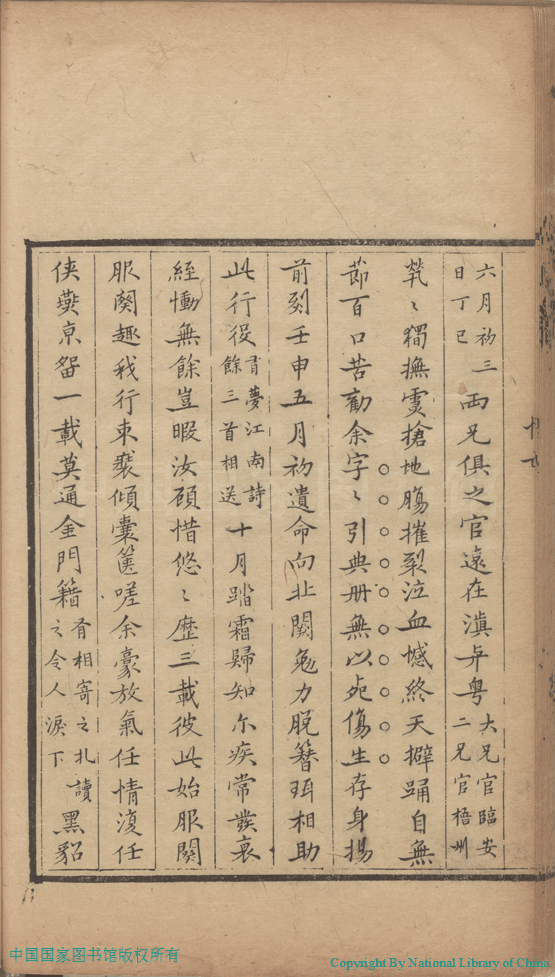 六月初三日丁巳兩兄俱之官遠在滇与粵大兄官臨安二兄官梧州
煢〻獨撫霊搶地腸摧裂泣血憾終天擗踊自無
節百口苦勸余字〻引典册無以死傷生存身揚
前刻壬申五月初遺命向北闕勉力脱簪珥相助
此行役有夢江南詩餘三首相送十月踏霜歸知尓疾常發衰
絰慟無餘豈暇汝顧惜悠〻歷三載彼此始服闋
服闋趣我行束裝傾囊篋嗟余豪放氣任情復任
俠燕京留一載莫通金門籍有相寄之札讀之令人淚下黑貂
中国国家图书馆版权所有
Copyright By National Library of China